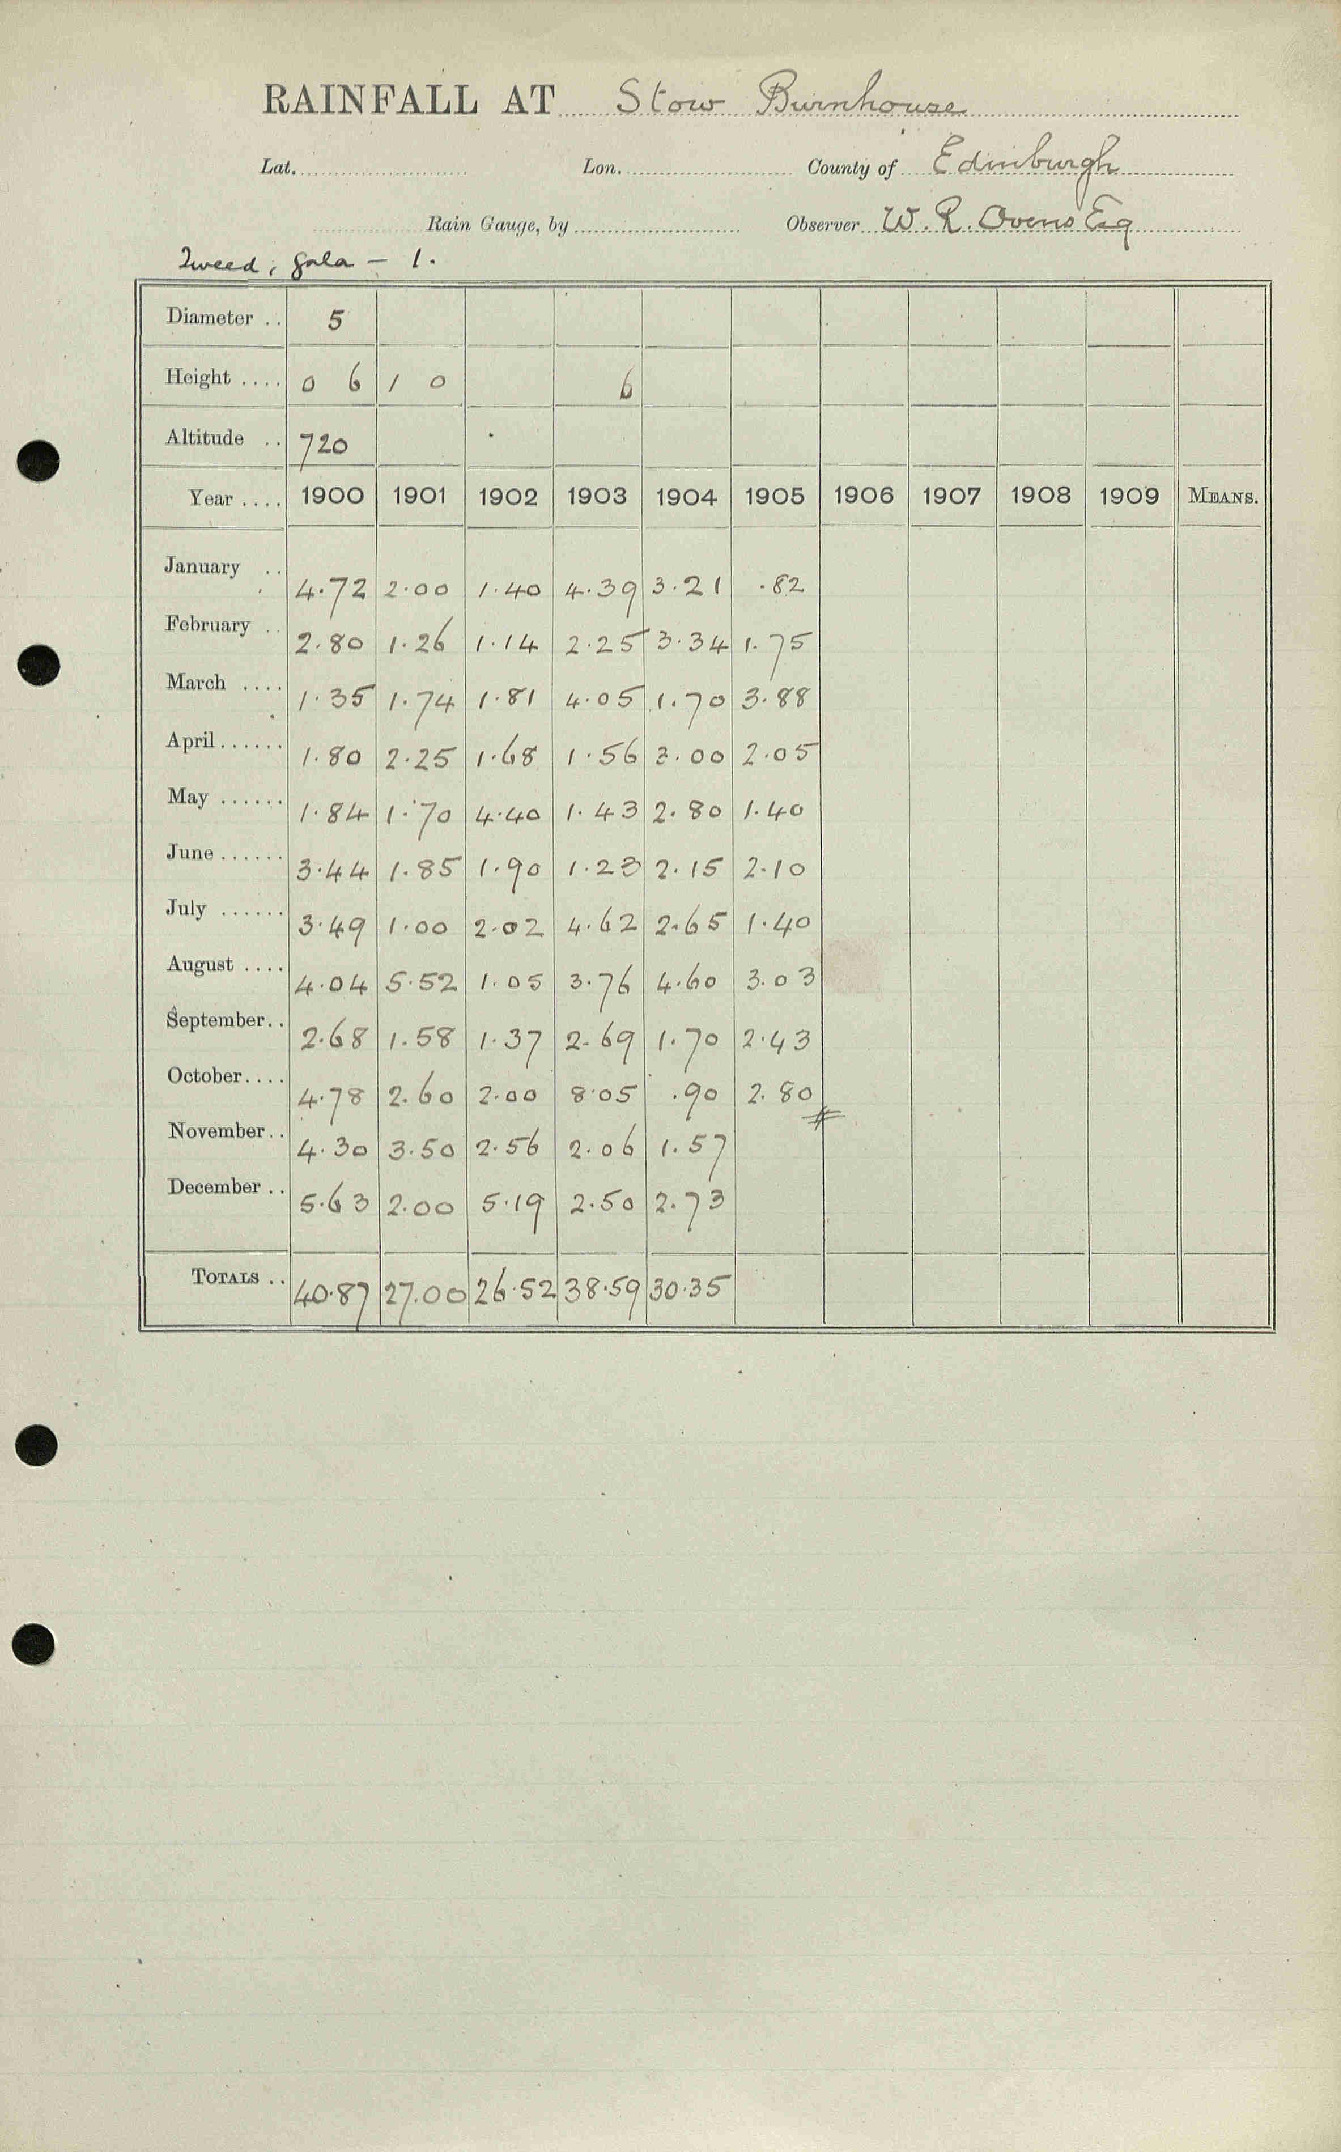 RAINFALL AT Stow Burnhouse
Lat. Lon. County of Edinburgh
Rain Gauge, by Observer W. R. Ovens Esq
Tweed; Gala - 1.
Diameter .. 5
Height .... 0 6 1 0 6
Altitude .. 720
Year .... 1900 1901 1902 1903 1904 1905 1906 1907 1908 1909 MEANS.
January .. 4.72 2.00 1.40 4.39 3.21 .82
February .. 2.80 1.26 1.14 2.25 3.34 1.75
March .... 1.35 1.74 1.81 4.05 1.70 3.88
April ...... 1.80 2.25 1.68 1.56 3.00 2.05
May ...... 1.84 1.70 4.40 1.43 2.80 1.40
June ...... 3.44 1.85 1.90 1.23 2.15 2.10
July ...... 3.49 1.00 2.02 4.62 2.65 1.40
August .... 4.04 5.52 1.05 3.76 4.60 3.03
September.. 2.68 1.58 1.37 2.69 1.70 2.43
October.... 4.78 2.60 2.00 8.05 .90 2.80
November.. 4.30 3.50 2.56 2.06 1.57
December .. 5.63 2.00 5.19 2.50 2.73
TOTALS .. 40.87 27.00 26.52 38.59 30.35